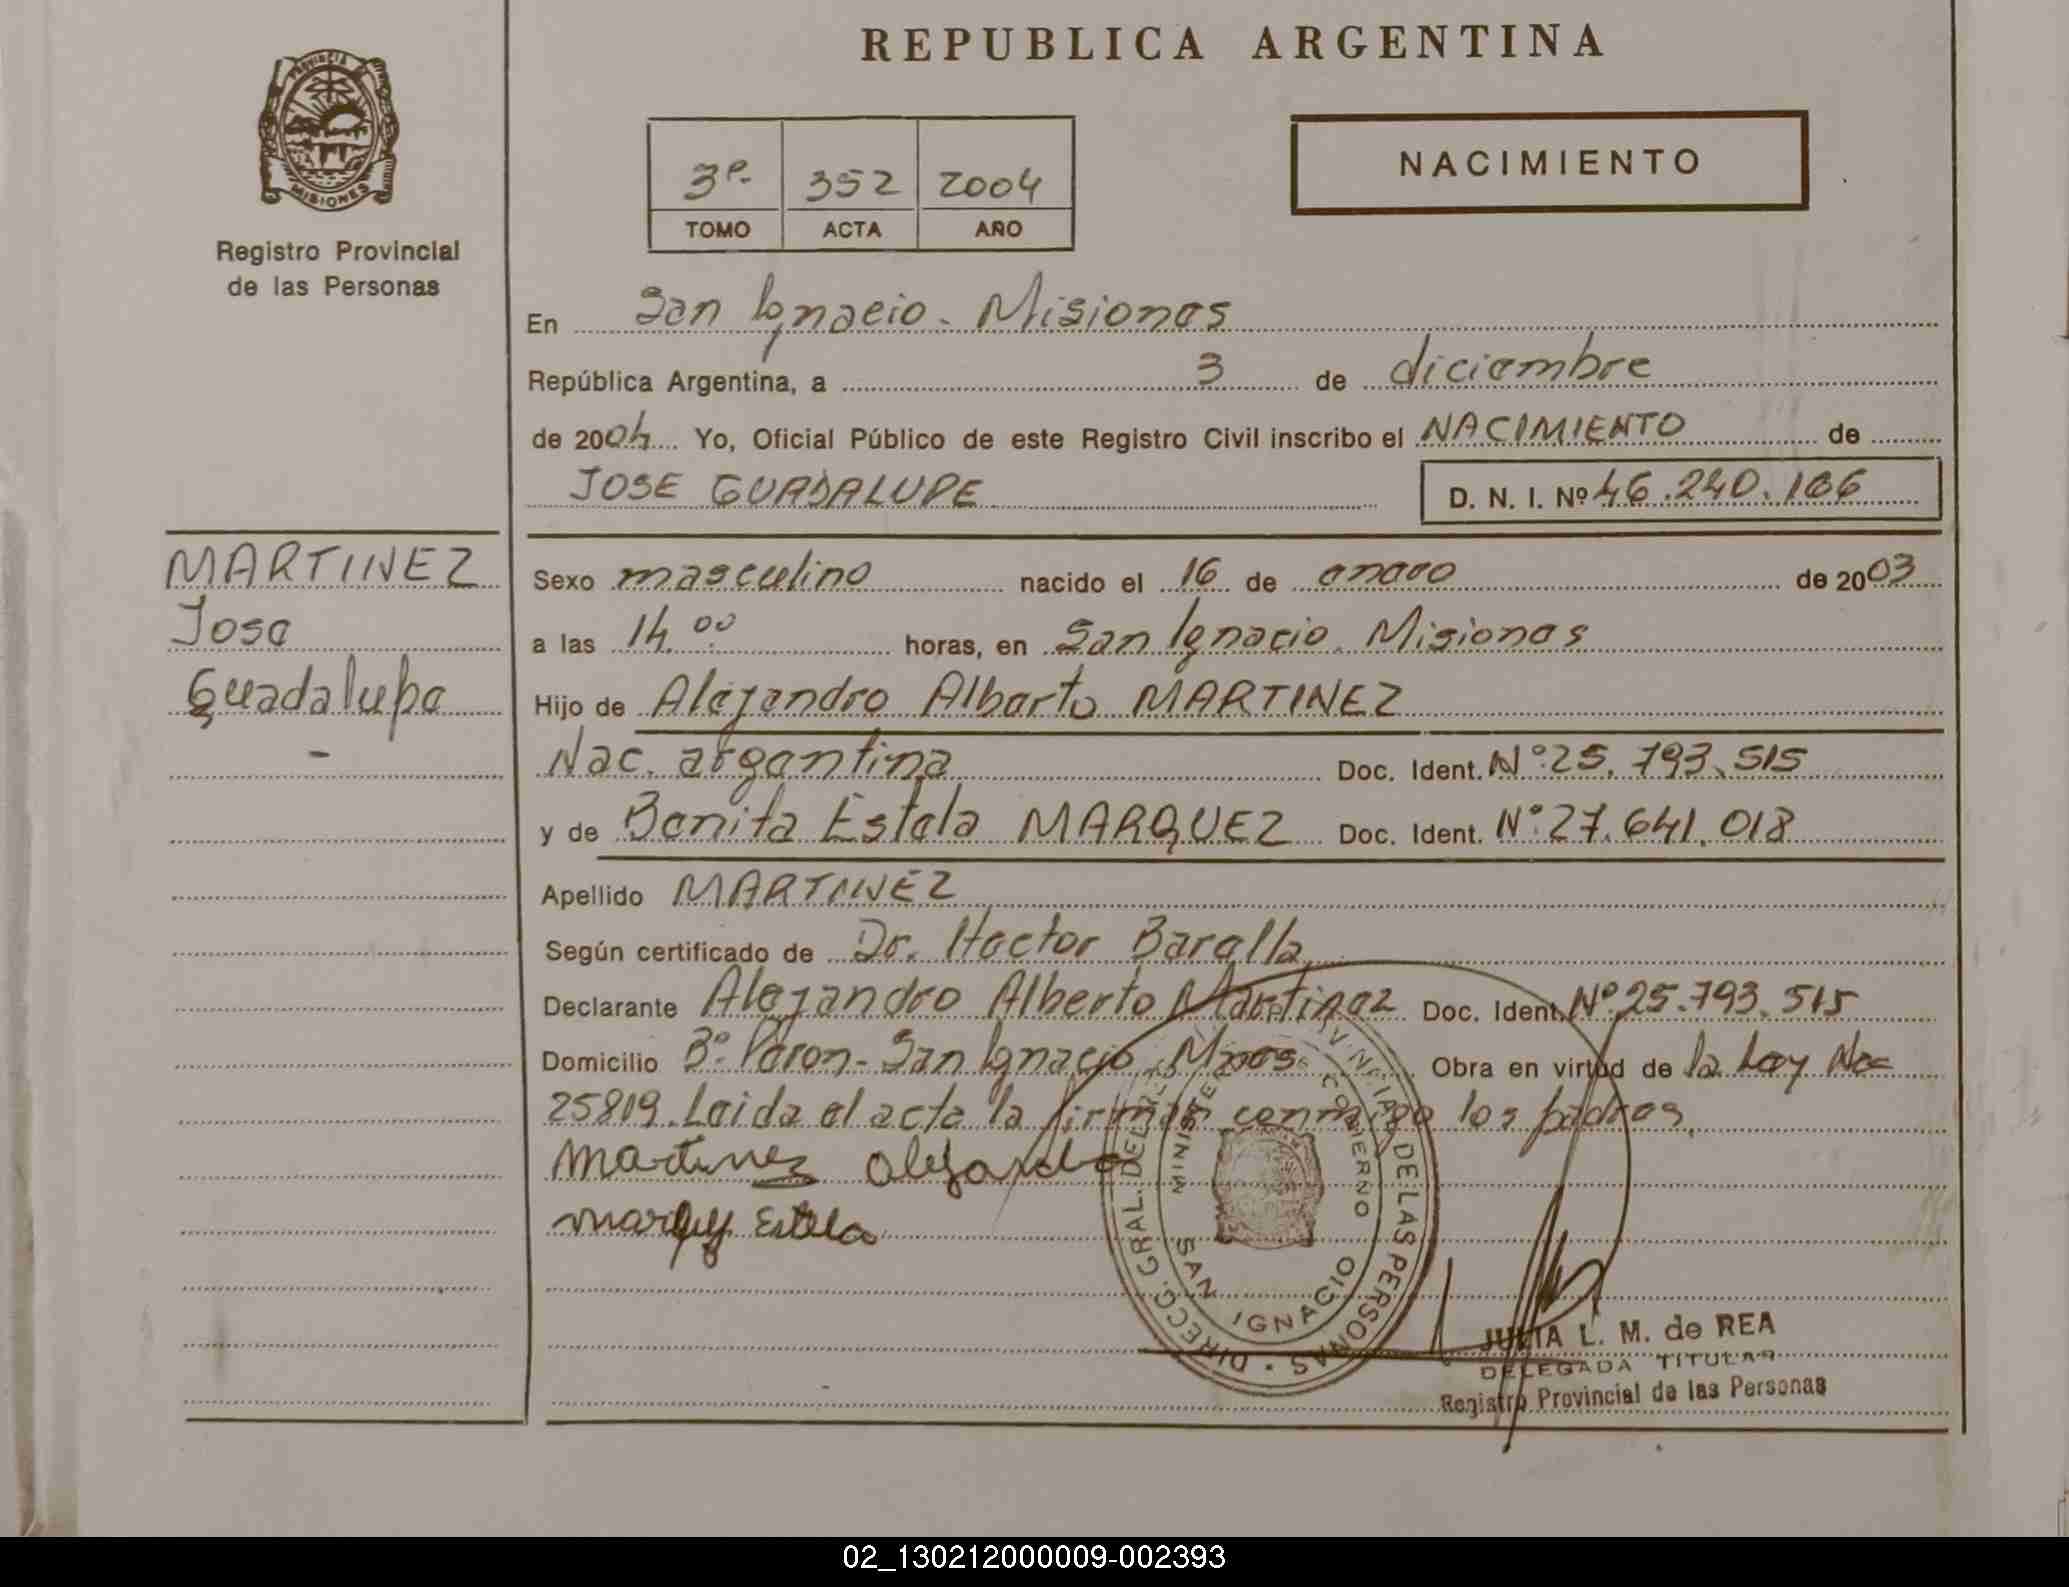 REPUBLICA ARGENTINA
PROVINCIA DE
MISIONES
Registro Provincial
de las Personas
3º 352 2004
TOMO ACTA AÑO
NACIMIENTO
En San Ignacio. Misiones
República Argentina, a 3 de diciembre
de 2004 Yo, Oficial Público de este Registro Civil inscribo el NACIMIENTO de
JOSE GUADALUPE D. N. I. Nº 46.240.166
MARTINEZ
Jose
Guadalupe
-
Sexo masculino nacido el 16 de enero de 2003
a las 14.00 horas, en San Ignacio. Misiones
Hijo de Alejandro Alberto MARTINEZ
Nac. argentina Doc. Ident. Nº 25.793.515
y de Benita Estela MARQUEZ Doc. Ident. Nº 27.641.018
Apellido MARTINEZ
Según certificado de Dr. Hector Baralla
Declarante Alejandro Alberto Martinez Doc. Ident. Nº 25.793.515
Domicilio Bº Peron - San Ignacio, Mnes Obra en virtud de la Ley Nac
25819. Leida el acta la firman conmigo los padres.
Martinez Alejandro
Marquez Estela
DIRECC. GRAL. DEL DE LAS PERSONAS
MINISTERIO GOBIERNO
SAN IGNACIO
JULIA L. M. de REA
DELEGADA TITULAR
Registro Provincial de las Personas
02_130212000009-002393